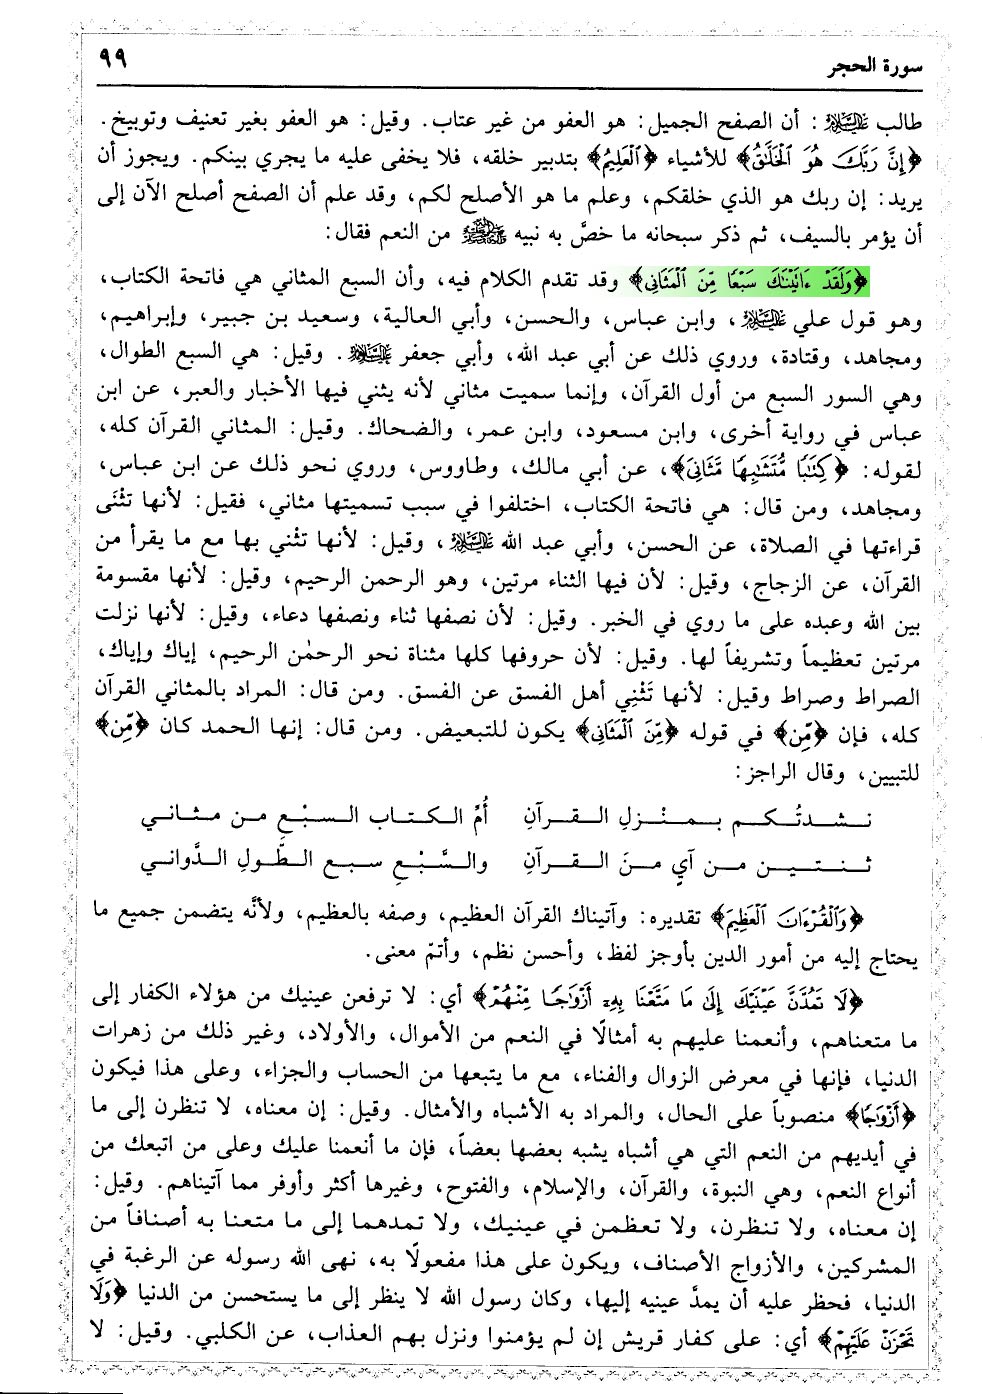 سورة الحجر ٩٩
طالب عليه السلام: أن الصفح الجميل: هو العفو من غير عتاب. وقيل: هو العفو بغير تعنيف وتوبيخ.
﴿إِنَّ رَبَّكَ هُوَ ٱلْخَلَّٰقُ﴾ للأشياء ﴿ٱلْعَلِيمُ﴾ بتدبير خلقه، فلا يخفى عليه ما يجري بينكم. ويجوز أن
يريد: إن ربك هو الذي خلقكم، وعلم ما هو الأصلح لكم، وقد علم أن الصفح أصلح الآن إلى
أن يؤمر بالسيف، ثم ذكر سبحانه ما خصَّ به نبيه من النعم فقال:
﴿وَلَقَدْ ءَاتَيْنَٰكَ سَبْعًا مِّنَ ٱلْمَثَانِى﴾ وقد تقدم الكلام فيه، وأن السبع المثاني هي فاتحة الكتاب،
وهو قول علي عليه السلام، وابن عباس، والحسن، وأبي العالية، وسعيد بن جبير، وإبراهيم،
ومجاهد، وقتادة، وروي ذلك عن أبي عبد الله، وأبي جعفر عليه السلام. وقيل: هي السبع الطوال،
وهي السور السبع من أول القرآن، وإنما سميت مثاني لأنه يثني فيها الأخبار والعبر، عن ابن
عباس في رواية أخرى، وابن مسعود، وابن عمر، والضحاك. وقيل: المثاني القرآن كله،
لقوله: ﴿كِتَٰبًا مُّتَشَٰبِهًا مَّثَانِىَ﴾، عن أبي مالك، وطاووس، وروي نحو ذلك عن ابن عباس،
ومجاهد، ومن قال: هي فاتحة الكتاب، اختلفوا في سبب تسميتها مثاني، فقيل: لأنها تثْنَى
قراءتها في الصلاة، عن الحسن، وأبي عبد الله عليه السلام، وقيل: لأنها تثْني بها مع ما يقرأ من
القرآن، عن الزجاج، وقيل: لأن فيها الثناء مرتين، وهو الرحمن الرحيم، وقيل: لأنها مقسومة
بين الله وعبده على ما روي في الخبر. وقيل: لأن نصفها ثناء ونصفها دعاء، وقيل: لأنها نزلت
مرتين تعظيماً وتشريفاً لها. وقيل: لأن حروفها كلها مثناة نحو الرحمٰن الرحيم، إياك وإياك،
الصراط وصراط وقيل: لأنها تَثْنِي أهل الفسق عن الفسق. ومن قال: المراد بالمثاني القرآن
كله، فإن ﴿مِّن﴾ في قوله ﴿مِّنَ ٱلْمَثَانِى﴾ يكون للتبعيض. ومن قال: إنها الحمد كان ﴿مِّن﴾
للتبيين، وقال الراجز:
نـشـدتُـكـم بـمـنْـزلِ الـقـرآنِ أُمِّ الـكـتـاب الـسـبْـعِ مـن مـثـانـي
ثـنـتـيـن مـن آيٍ مـنَ الـقـرآنِ والـسَّـبْـعِ سـبـع الـطّـول الـدَّوانـي
﴿وَٱلْقُرْءَانَ ٱلْعَظِيمَ﴾ تقديره: وآتيناك القرآن العظيم، وصفه بالعظيم، ولأنَّه يتضمن جميع ما
يحتاج إليه من أمور الدين بأوجز لفظ، وأحسن نظم، وأتمّ معنى.
﴿لَا تَمُدَّنَّ عَيْنَيْكَ إِلَىٰ مَا مَتَّعْنَا بِهِۦٓ أَزْوَٰجًا مِّنْهُمْ﴾ أي: لا ترفعن عينيك من هؤلاء الكفار إلى
ما متعناهم، وأنعمنا عليهم به أمثالًا في النعم من الأموال، والأولاد، وغير ذلك من زهرات
الدنيا، فإنها في معرض الزوال والفناء، مع ما يتبعها من الحساب والجزاء، وعلى هذا فيكون
﴿أَزْوَٰجًا﴾ منصوباً على الحال، والمراد به الأشباه والأمثال. وقيل: إن معناه، لا تنظرن إلى ما
في أيديهم من النعم التي هي أشباه يشبه بعضها بعضاً، فإن ما أنعمنا عليك وعلى من اتبعك من
أنواع النعم، وهي النبوة، والقرآن، والإسلام، والفتوح، وغيرها أكثر وأوفر مما آتيناهم. وقيل:
إن معناه، ولا تنظرن، ولا تعظمن في عينيك، ولا تمدهما إلى ما متعنا به أصنافاً من
المشركين، والأزواج الأصناف، ويكون على هذا مفعولًا به، نهى الله رسوله عن الرغبة في
الدنيا، فحظر عليه أن يمدَّ عينيه إليها، وكان رسول الله لا ينظر إلى ما يستحسن من الدنيا ﴿وَلَا
تَحْزَنْ عَلَيْهِمْ﴾ أي: على كفار قريش إن لم يؤمنوا ونزل بهم العذاب، عن الكلبي. وقيل: لا